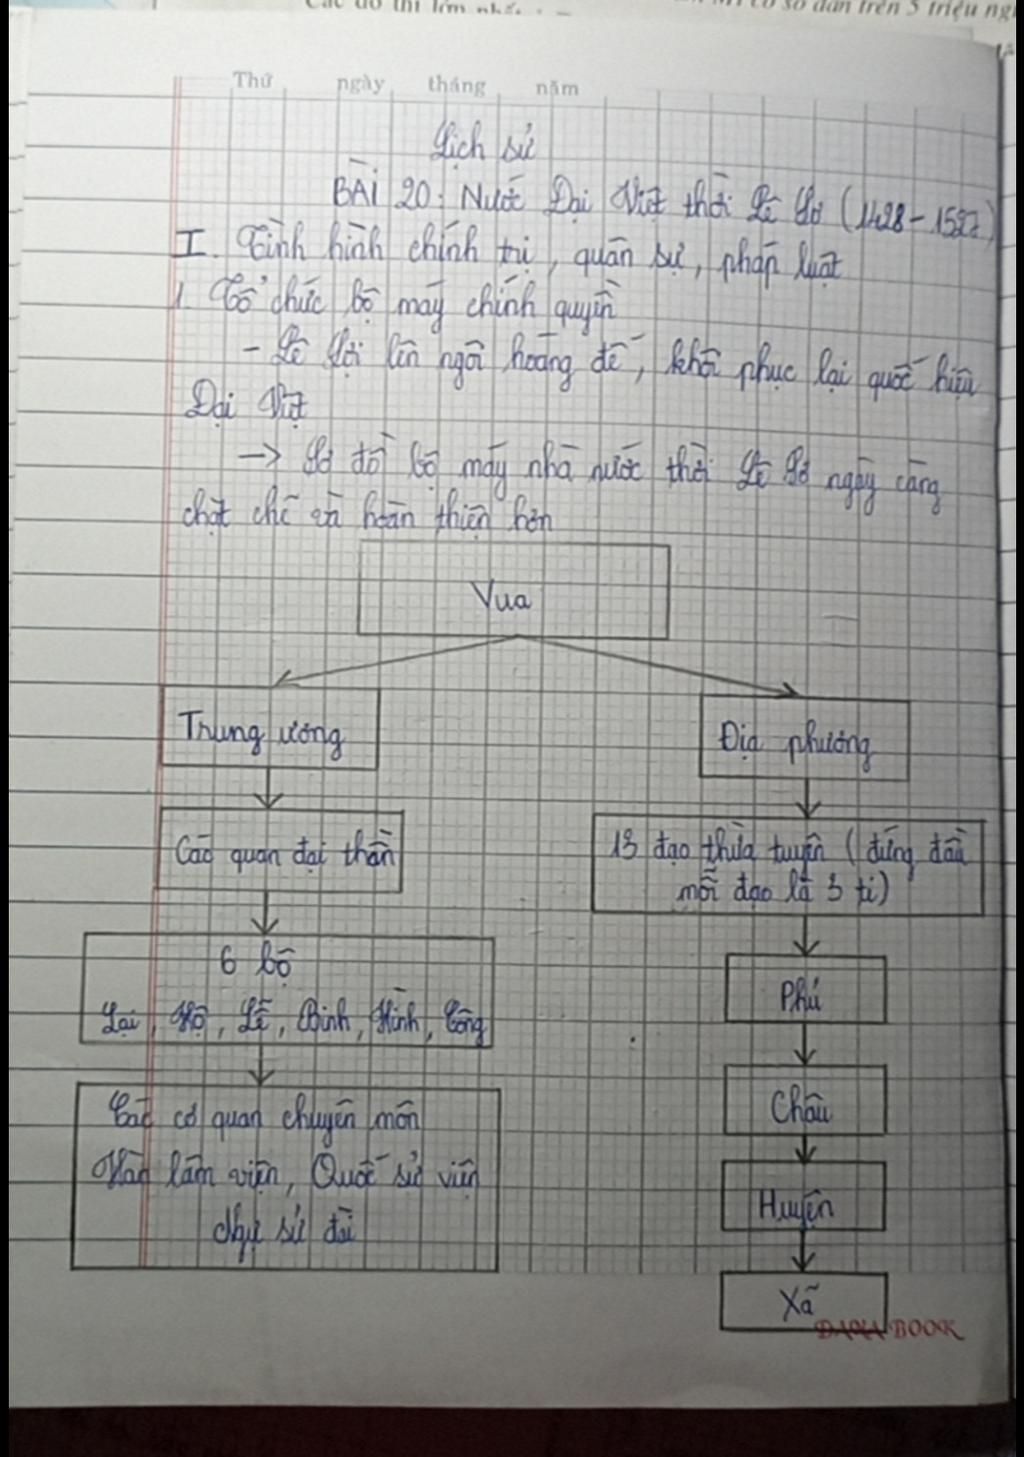 Các đô thị lớn nhất
có số dân trên 5 triệu ng
Thứ ngày tháng năm
Lịch sử
BÀI 20: Nước Đại Việt thời Lê Sơ (1428 - 1527)
I. Tình hình chính trị, quân sự, pháp luật
1. Tổ chức bộ máy chính quyền
- Lê Lợi lên ngôi hoàng đế, khôi phục lại quốc hiệu
Đại Việt
-> Sơ đồ bộ máy nhà nước thời Lê Sơ ngày càng
chặt chẽ và hoàn thiện hơn
Vua
Trung ương
Địa phương
Các quan đại thần
13 đạo thừa tuyên (đứng đầu
mỗi đạo là 3 ti)
6 bộ
Lại, Hộ, Lễ, Binh, Hình, Công
Phủ
Châu
Các cơ quan chuyên môn
Hàn lâm viện, Quốc sử viện
Ngự sử đài
Huyện
Xã
DAOLA BOOK